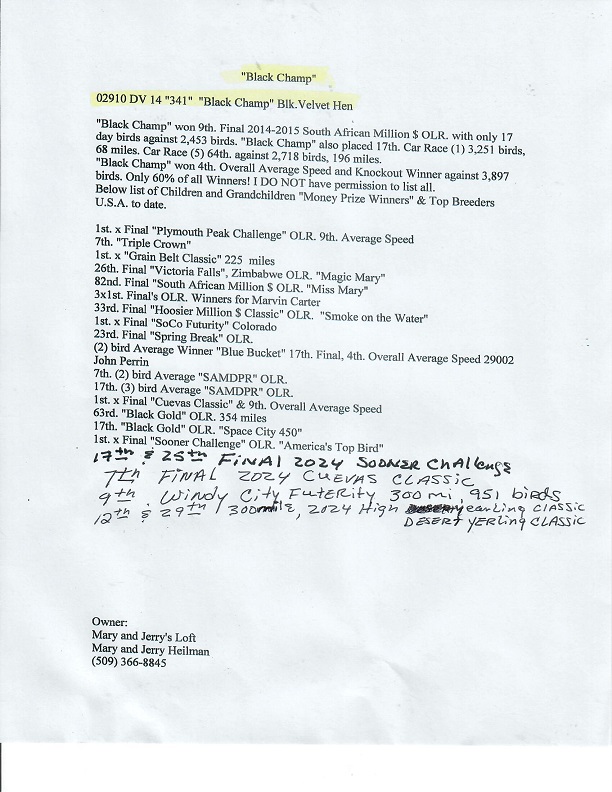 "Black Champ"
02910 DV 14 "341" "Black Champ" Blk.Velvet Hen
"Black Champ" won 9th. Final 2014-2015 South African Million $ OLR. with only 17
day birds against 2,453 birds. "Black Champ" also placed 17th. Car Race (1) 3,251 birds,
68 miles. Car Race (5) 64th. against 2,718 birds, 196 miles.
"Black Champ" won 4th. Overall Average Speed and Knockout Winner against 3,897
birds. Only 60% of all Winners! I DO NOT have permission to list all.
Below list of Children and Grandchildren "Money Prize Winners" & Top Breeders
U.S.A. to date.
1st. x Final "Plymouth Peak Challenge" OLR. 9th. Average Speed
7th. "Triple Crown"
1st. x "Grain Belt Classic" 225 miles
26th. Final "Victoria Falls", Zimbabwe OLR. "Magic Mary"
82nd. Final "South African Million $ OLR. "Miss Mary"
3x1st. Final's OLR. Winners for Marvin Carter
33rd. Final "Hoosier Million $ Classic" OLR. "Smoke on the Water"
1st. x Final "SoCo Futurity" Colorado
23rd. Final "Spring Break" OLR.
(2) bird Average Winner "Blue Bucket" 17th. Final, 4th. Overall Average Speed 29002
John Perrin
7th. (2) bird Average "SAMDPR" OLR.
17th. (3) bird Average "SAMDPR" OLR.
1st. x Final "Cuevas Classic" & 9th. Overall Average Speed
63rd. "Black Gold" OLR. 354 miles
17th. "Black Gold" OLR. "Space City 450"
1st. x Final "Sooner Challenge" OLR. "America's Top Bird"
17th & 25th FINAL 2024 SOONER CHAllENgE
7th FINAL 2024 CUEVAS CLASSIC
9th. WINDY CITY FUTERITY 300 mi, 951 birds
12th & 29th / 300mile, 2024 High yearling CLASSIC
DESERT YERLING CLASSIC
Owner:
Mary and Jerry's Loft
Mary and Jerry Heilman
(509) 366-8845